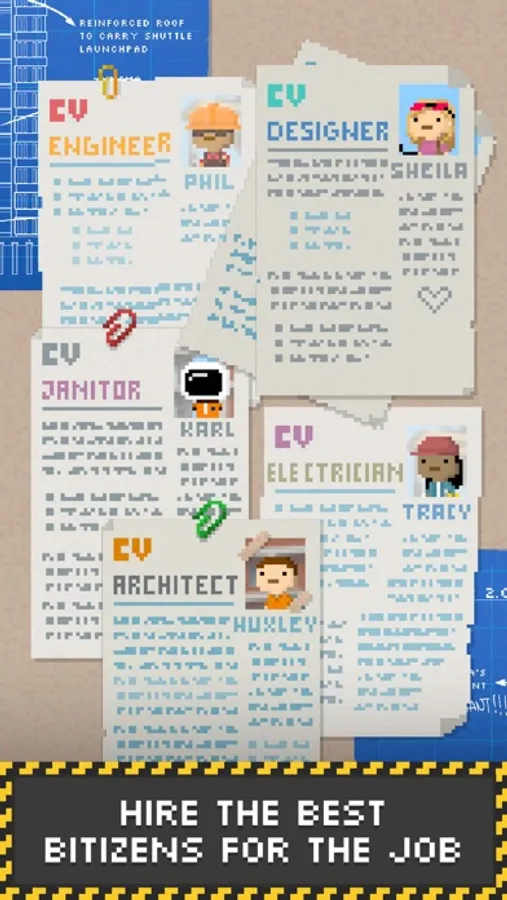 REINFORCED ROOF
TO CARRY SHUTTLE
LAUNCHPAD
CV
ENGINEER
PHIL
CV
DESIGNER
SHEILA
CV
JANITOR
KARL
CV
ELECTRICIAN
TRACY
CV
ARCHITECT
HUXLEY
2.0
HIRE THE BEST
BITIZENS FOR THE JOB